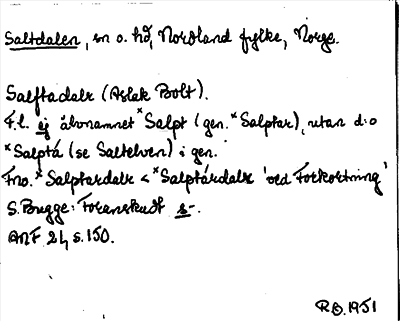 Saltdalen, sn o. hd, Nordland fylke, Norge.
Salftadalr (Aslak Bolt).
F.l. ej älvnamnet *Salpt (gen. *Salptar), utan d:o
*Salptá (se Saltelven) i gen.
Fno. *Salptardalr < *Salptárdalr 'ved Forkortning'
S. Bugge: Foranskudt s-.
ANF 21, s. 150.
R.O. 1951